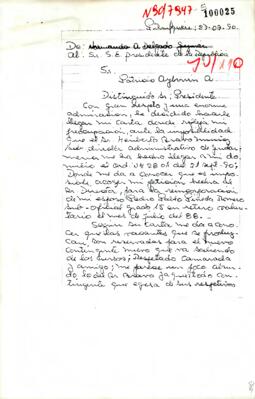 100025
27-07-90.
Al: Sr. S.E. presidente de la República
Sr.
Patricio Aylwin A.
Distinguido Sr. Presidente
Con gran respeto y una enorme
admiración, he decidido hacerle
llegar mi carta donde reflejo mi
preocupación, ante la imposibilidad
que el Sr. Heriberto Bravo
sub-director administrativo de
me ha hecho llegar a mi do
Donde me da a conocer que es impo
sible acoger mi petición hecha al
Sr. Director, para la reincorporación
de mi esposo Pedro
Sub-Oficial grado 15 en retiro volun
tario el mes de Julio del 86.-
Según su carta me da a cono
cer que las vacantes que se produz
can son reservadas para el nuevo
contingente nuevo que va saliendo
de los cursos; Respetado Camarada
y amigo; me parece un poco absur
do lo del Sr. Bravo ya que todo con
tingente que egresa de sus respectivos